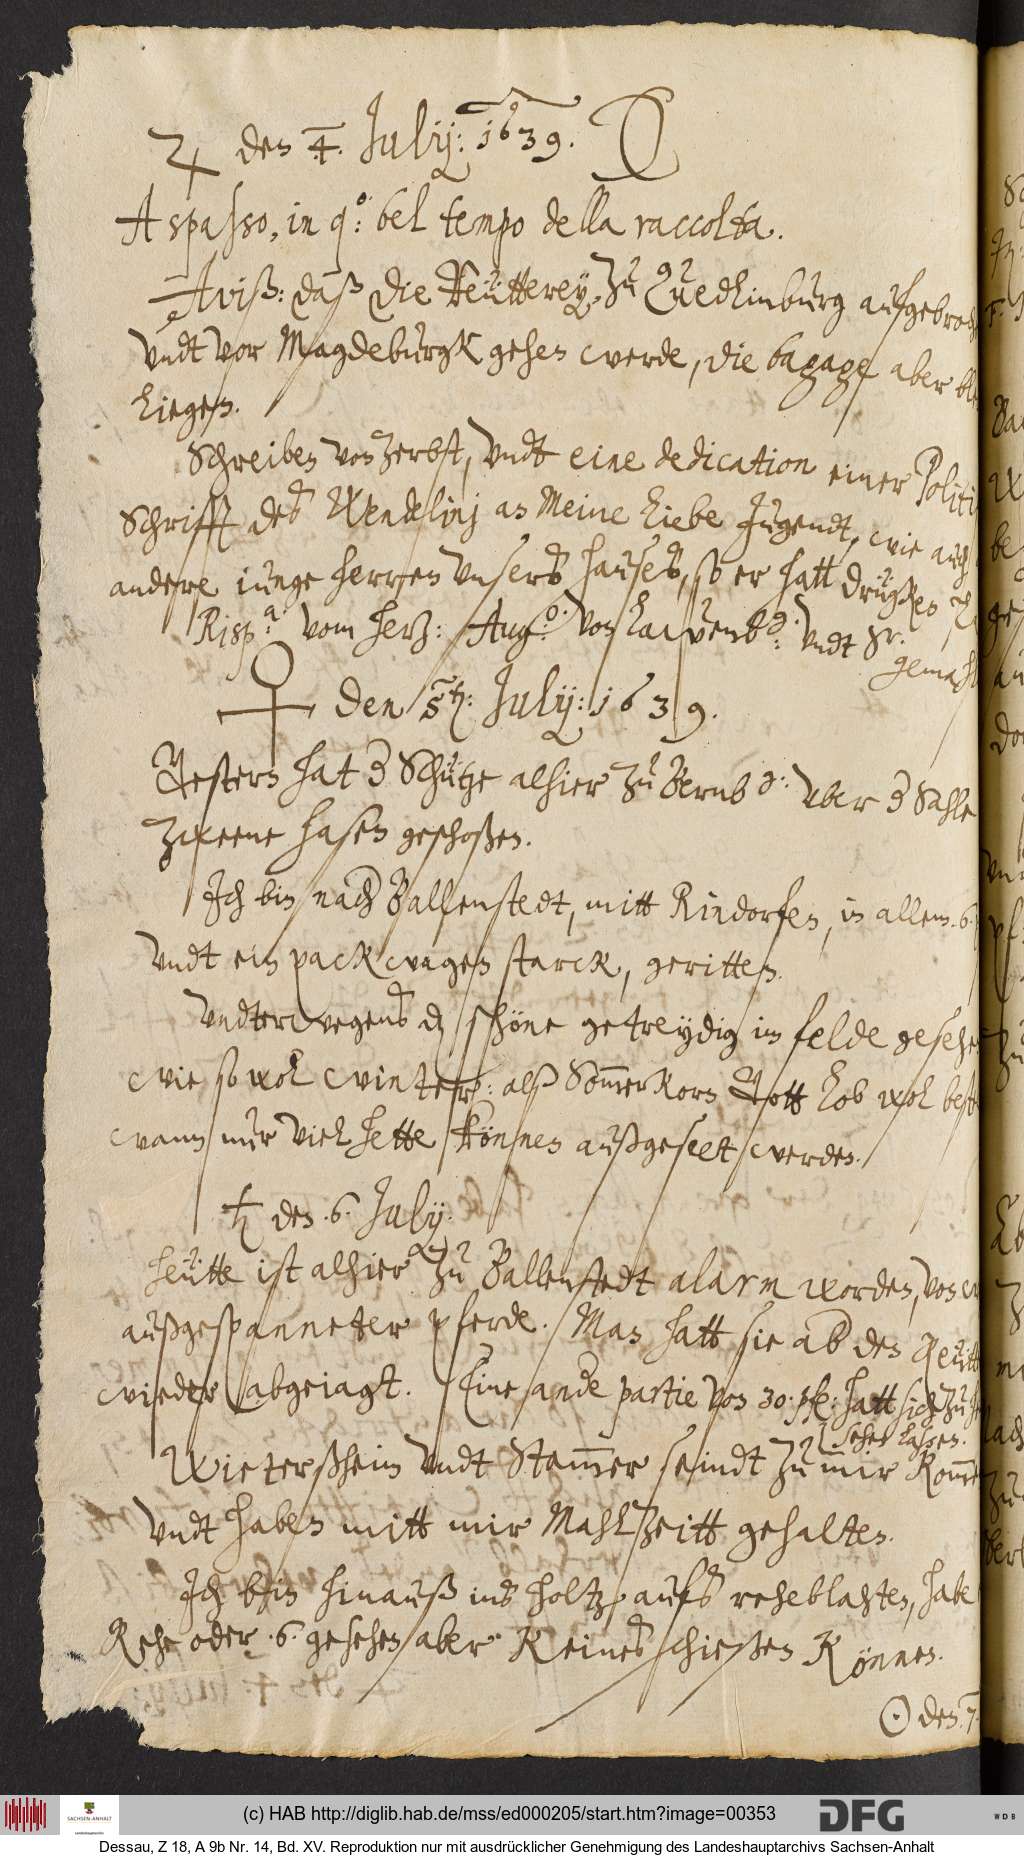 ♃ den 4. July: 1639. ☽
A spasso, in q.o: bel tempo della raccolta.
Aviß: daß die Reütterey, zu Quedlinburg aufgebroch
vndt vor Magdeburgk gehen werde, die bagage aber ble
liegen.
Schreiben von Zerbst, vndt eine dedication einer Politi
Schrifft des Wendelinj an Meine liebe Jugendt, wie auch
andere iunge herren vnsers hauses, so er hatt drucken
Risp.a: vom herz: Aug.o: von lawenb.g: vndt Sr.
gemahl
♀ den 5t: July: 1639.
Gestern hat d Schütze alhier zu Bernb.g: vber d Sahle
zweene hasen geschoßen.
Ich bin nach Ballenstedt, mitt Rindorfen, in allem .6.
vndt ein packwagen starck, geritten.
Vndterwegens dz schöne getreydig im felde gesehe
wie so wol winter: alß Sommerkorn Gott lob wol best
wann nur viel hette können außgeseet werden.
♄ den .6. July:
Heütte ist alhier zu Ballenstedt alarm worden, von
außgespanneter pferde. Man hatt sie ab den Reütt
wieder abgeiagt. Eine ande partie von 30. pf: hatt sich zu
sehen laßen.
Wietersheim vndt Stammer seindt zu mir komme
vndt haben mitt mir Mahlzeitt gehalten.
Ich bin hinauß ins holtz aufs reheblahten, habe
Rehe oder .6. gesehen aber keines schießen können.
☉ den .7.
(c) HAB http://diglib.hab.de/mss/ed000205/start.htm?image=00353
SACHSEN-ANHALT
DFG
WDB
Dessau, Z 18, A 9b Nr. 14, Bd. XV. Reproduktion nur mit ausdrücklicher Genehmigung des Landeshauptarchivs Sachsen-Anhalt